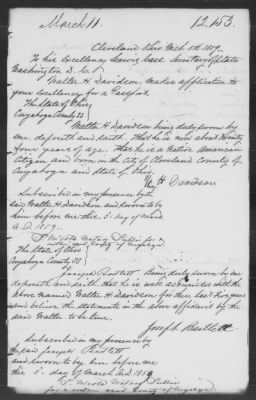 March 11.
12,153
Cleveland Ohio Mch 5th 1859.
To his Excellency Lewis Cass Secretary of State
Washington D. C.
Walter H Davidson makes application to
your excellency for a Passport.
The State of Ohio
Cuyahoga County SS
Walter H Davidson being duly sworn by
me deposeth and saith that he is now about Twenty
four years of age. That he is a Native American
Citizen and born in the City of Cleveland County of
Cuyahoga and State of Ohio.
H Davidson
Subscribed in my presence by the
said Walter H Davidson and sworn to by
him before me this 5th day of March
A.D. 1859.
Notary Public for &
within said County of Cuyahoga
The State of Ohio
Cuyahoga County SS
Joseph Bartlett Being duly sworn by me
deposeth and saith that he is well acquainted with the
above named Walter H Davidson for these last five years
and believes the statements in the above affidavit by the
said Walter to be true.
Joseph Bartlett
Subscribed in my presence by
the said Joseph Bartlett
and sworn to by him before me
this 5th day of March A.D. 1859
Notary Public
for & within said County of Cuyahoga